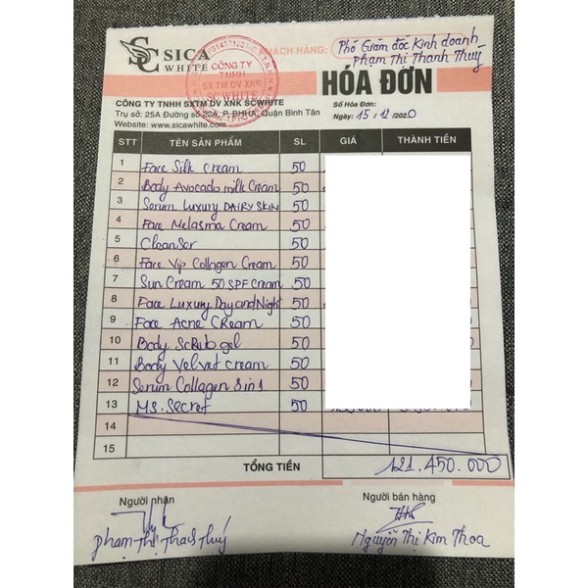 SC SICA
WHITE
CÔNG TY
TNHH
SX TM DV XNK
SCWHITE
KHÁCH HÀNG:
Phó Giám đốc Kinh doanh
Phạm Thị Thanh Thuý
HÓA ĐƠN
CÔNG TY TNHH SXTM DV XNK SCWHITE
Trụ sở: 25A Đường số 22A, P. BHHA, Quận Bình Tân
Website: www.sicawhite.com
Số Hóa Đơn:
Ngày: 15 / 12 /2020
STT TÊN SẢN PHẨM SL GIÁ THÀNH TIỀN
1 Face Silk cream 50
2 Body Avocado milk Cream 50
3 Serum Luxury DAIRY SKIN 50
4 Face Melasma Cream 50
5 Cleanser 50
6 Face Vip Collagen Cream 50
7 Sun Cream 50 SPF Cream 50
8 Face Luxury Day and Night 50
9 Face Acne CReam 50
10 Body ScRub gel 50
11 Body Velvet cream 50
12 Serum Collagen 3 in 1 50
13 MS. Secret 50
14
15
TỔNG TIỀN 121.450.000
Người nhận Người bán hàng
Phạm Thị Thanh Thuý Nguyễn Thị Kim Thoa